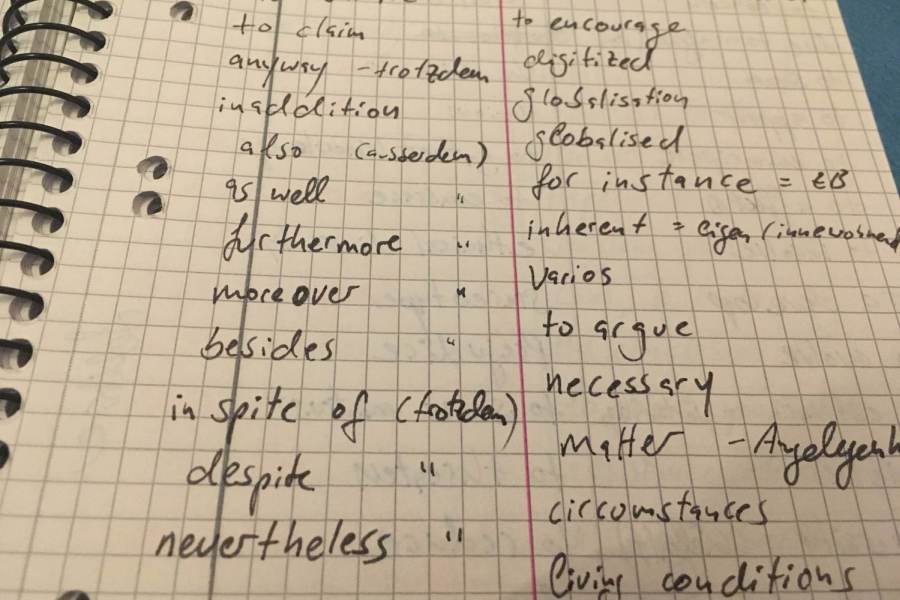 to claim
anyway - trotzdem
in addition
also (ausserdem)
as well "
furthermore "
moreover "
besides "
in spite of (trotzdem)
despite "
nevertheless "
to encourage
digitized
globalisation
globalised
for instance = zB
inherent = eigen (innewohnend
varios
to argue
necessary
matter - Angelegenh
circumstances
living conditions